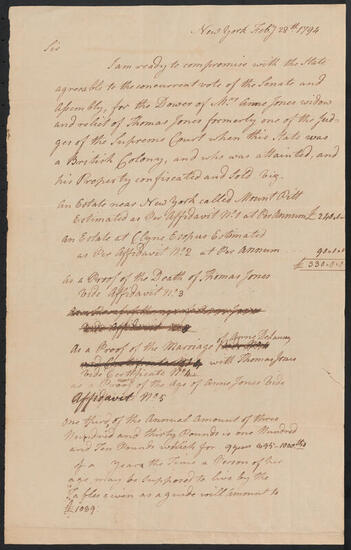 New York Feby 28th 1794
Sir
I am ready to compromise with the State
agreeable to the concurrent vote of the Senate and
Assembly, for the Dower of Mrs Anne Jones widow
and relict of Thomas Jones formerly one of the Jud-
ges of the Supreme Court when this State was
a British Colony, and who was attainted, and
his Property confiscated and Sold Viz.
An Estate near New York called Mount Pitt
Estimated as Per Affidavit No 1 at Per Annum £ 240.0.0
An Estate at Clyne Esopus Estimated
as Per Affidavit No 2 at Per Annum 90.0.0
£ 330.0.0
As a Proof of the Death of Thomas Jones
Vide Affidavit No 3
Vide Affidavit
As a Proof of the Marriage of Anne Delancey
with Thomas Jones
Vide Certificate No 4
as a Proof of the Age of Anne Jones Vide
Affidavit No 5
One third of the Annual Amount of three
Hundred and thirty Pounds is one Hundred
and Ten Pounds which for 9 years 495-1000ths
of a year the Time a Person of her
age may be Supposed to live by the
Tables given as a guide will amount to
£ 1089.